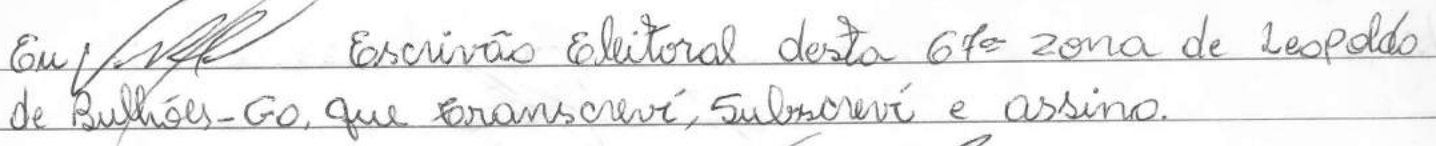 Eu, Escrivão Eleitoral desta 67ª zona de Leopoldo
de Bulhões-Go, que transcreví, subscreví e assino.